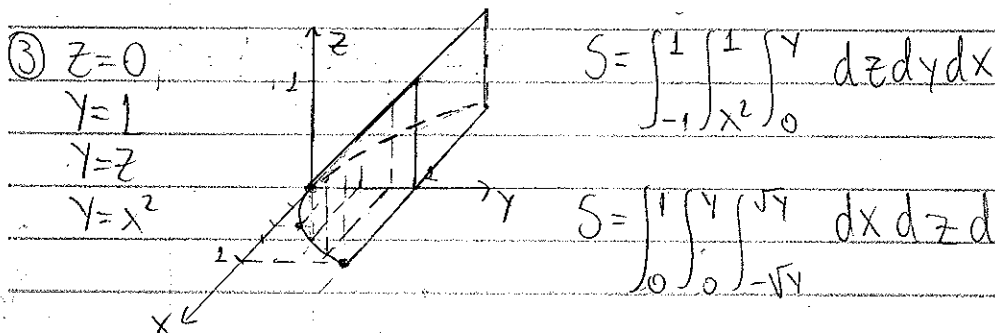 ③ Z=0
Y=1
Y=Z
Y=X²
Z
1
1
Y
1
X
S=∫_{-1}^{1}∫_{X²}^{1}∫_{0}^{Y} dzdydx
S=∫_{0}^{1}∫_{0}^{Y}∫_{-√Y}^{√Y} dxdzd